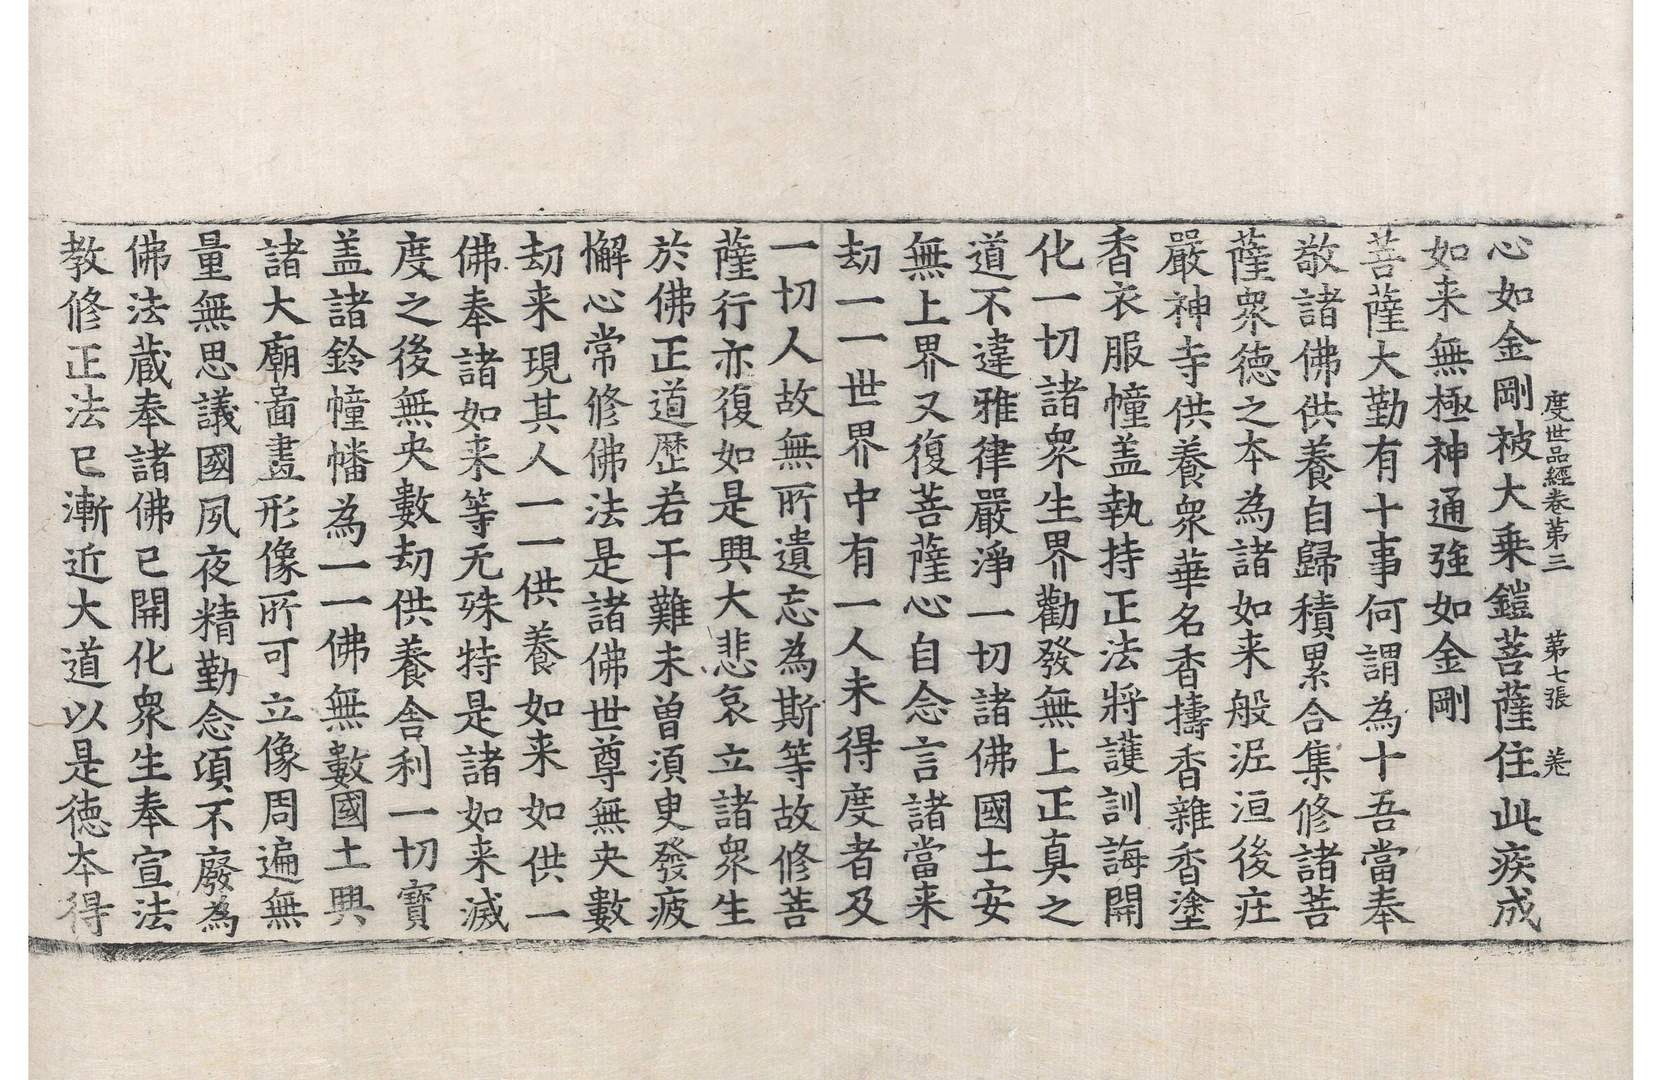 度世品經卷第三 第七張 卷
心如金剛被大乘鎧菩薩住此疾成
如来無極神通強如金剛
菩薩大勤有十事何謂為十吾當奉
敬諸佛供養自歸積累合集修諸菩
薩衆德之夲為諸如来般泥洹後庄
嚴神寺供養衆華名香擣香雜香塗
香衣服幢盖執持正法將護訓誨開
化一切諸衆生界勸發無上正真之
道不違雅律嚴淨一切諸佛國土安
無上界又復菩薩心自念言諸當来
劫一一世界中有一人未得度者及
一切人故無所遺忘為斯等故修菩
薩行亦復如是興大悲哀立諸衆生
於佛正道歷若干難未曽湏臾發疲
懈心常修佛法是諸佛世尊無央數
劫来現其人一一供養如来如供一
佛奉諸如来等无殊特是諸如来滅
度之後無央數劫供養舎利一切寶
盖諸鈴幢幡為一一佛無數國土興
諸大廟啚畫形像所可立像周遍無
量無思議國夙夜精勤念湏不廢為
佛法藏奉諸佛已開化衆生奉宣法
教修正法已漸近大道以是德夲得